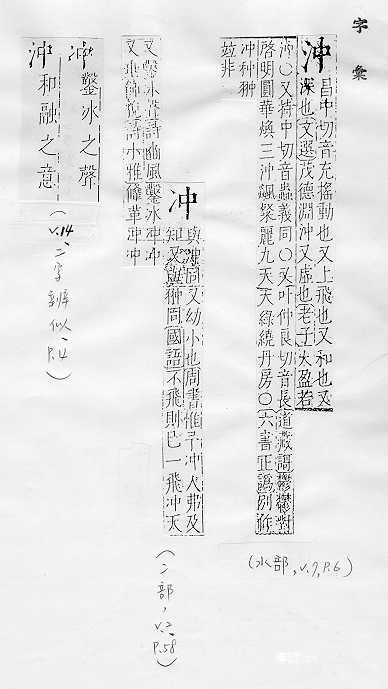 字彙
沖
昌中切音充搖動也又上飛也又和也又
深也文選茂德淵沖又虛也老子大盈若
沖○又持中切音蟲義同○又吓仲良切音長道藏謌鬱鬱對
啓明圓華煥三沖颯聚麗九天天綠繞丹房○六書正譌別作
沖种翀
竝非
(水部, v.7, P.6)
冲
與沖同又幼小也周書惟予冲人弗及
知又與翀同國語不飛則已一飛冲天
又鑿冰聲詩豳風鑿冰冲冲
又垂飾貌詩小雅鞗革冲冲
(冫部, v.2, P.58)
冲 鑿冰之聲
沖 和融之意
(v.14, 二字辨似, P.4)
粵語.cn